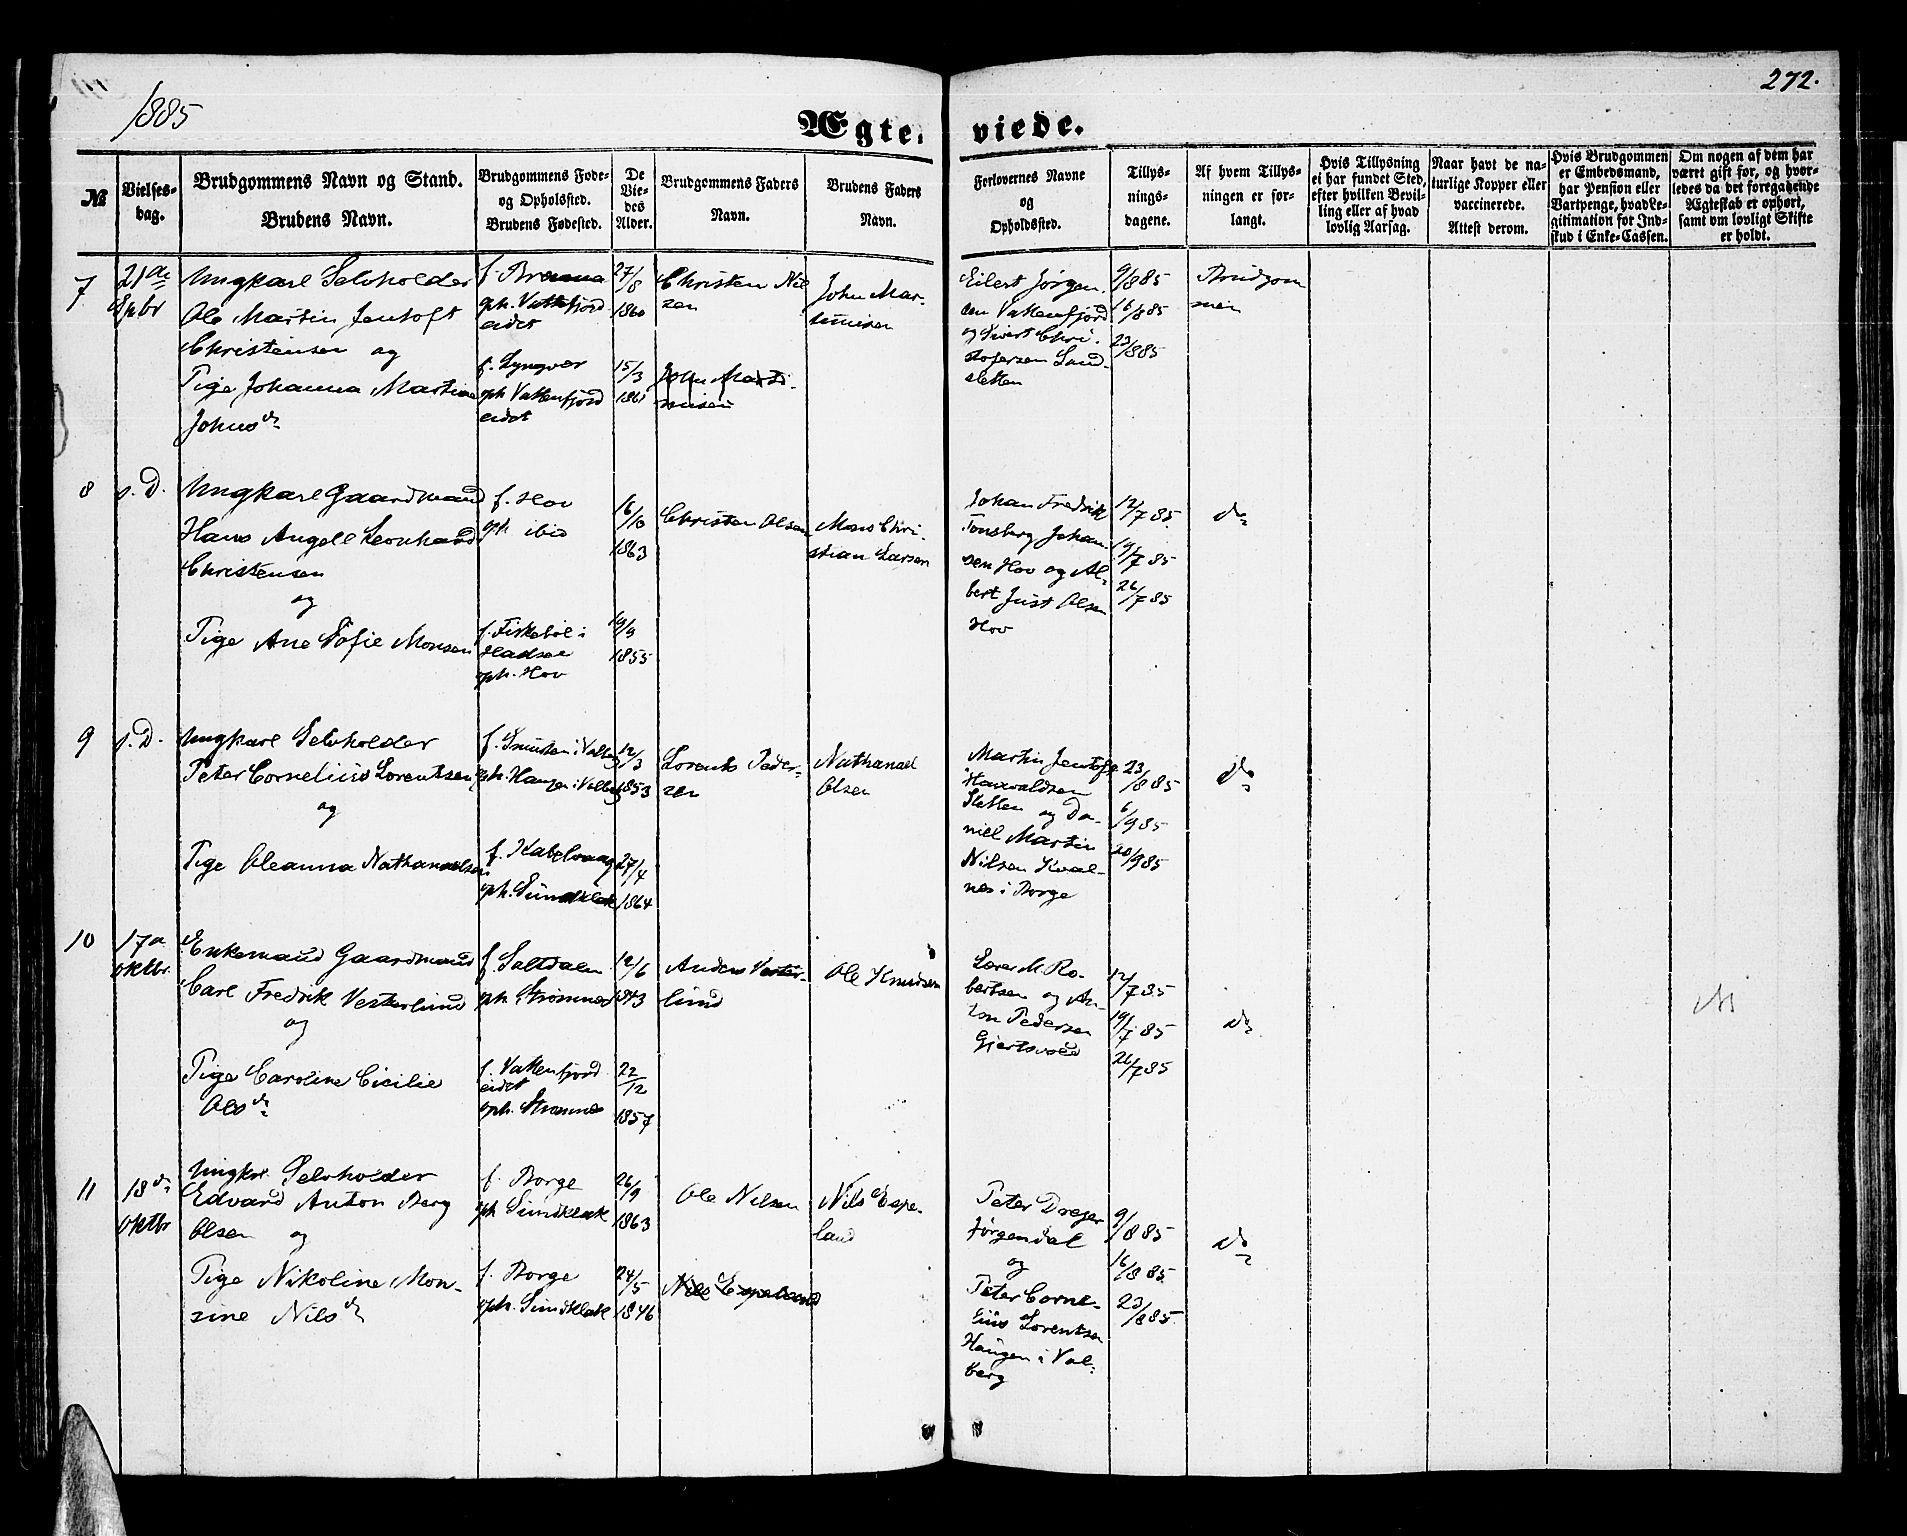 1885
272.
Ægteviede.
№
Vielses-
dag.
Brudgommens Navn og Stand.
Brudens Navn.
Brudgommens Føde-
og Opholsfted.
Brudens Fødested.
De
Vie-
des
Alder.
Brudgommens Faders
Navn.
Brudens Faders
Navn.
Forlovernes Navne
og
Opholdssted.
Tillys-
nings-
dagene.
Af hvem Tillys-
ningen er for-
langt.
Hvis Tillysning
ei har fundet Sted,
efter hvilken Bevil-
ling eller af hvad
lovlig Aarsag.
Naar havt de na-
turlige Kopper eller
vaccinerede.
Attest derom.
Hvis Brudgommen
er Embedsmand,
har Pension eller
Vartpenge, hvad Le-
gitimation for Ind-
skud i Enke-Cassen.
Om nogen af dem har
været gift før, og hvor-
ledes da det foregaaende
Ægteskab er ophørt,
samt om lovligt Skifte
er holdt.
7
21de
Spbr
Ungkarl Selvholder
Ole Martin Jentoft
Christensen og
Pige Johanna Martine
Johnsdr
f.
oph. Vattefjord
eidet
f. Lyngvær
oph Vattenfjord
eidet
27/8
1860
15/3
1861
Christen Niel
sen
John Marti-
nusen
John Mar-
tinusen
Eilert Jørgen.
sen Vattenfjord
og Sivert Chri.
stofersen Sand-
sletten
9/885
16/885
23/885
Brudgom
men
8
s. D.
Ungkarl Gaardmand
Hans Angell Leonhard
Christensen
og
Pige Ane Sofie Monsen
f. Hov
oph ibid
f. Fiskebøl i
Hadsel
oph. Hov
16/10
1863
19/9
1855
Christen Olsen
Mons Chri-
stian Larsen
Johan Fredrik
Tønsberg Johan-
sen Hov og Al-
bert Just Olsen
Hov
12/7 85
19/7 85
26/7 85
do
9
s. D.
Ungkarl Selvholder
Peter Cornelius Lorentsen
og
Pige Oleanna Nathanaelsen
f. i Valberg
oph. Haugen i Valberg
f. Kabelvaag
oph. Sundklak
12/3
1853
27/4
1864
Lorents Peder-
sen
Nathanael
Olsen
Martin Jentoft
Haavaldsen
Sletten og Da-
niel Martin
Nilsen Kval-
nes i Borge
23/885
6/985
20/985
do
10
17de
Oktbr.
Enkemand Gaardmand
Carl Fredrik Vesterlund
og
Pige Caroline Cicilie
Olsdr
f. Saltdalen
oph. Strømnes
f. Vattenfjord
eidet
oph. Strømnes
12/6
1843
22/12
1857
Anders Vester-
lund
Ole Knudsen
Lærer M. Ro-
bertsen og An-
ton Pedersen
Gjertsvold
12/7 85
19/7 85
26/7 85
do
11
18de
Oktbr
Ungkrl. Selvholder
Edvard Anton Berg
Olsen og
Pige Nikoline Mon-
sine Nilsdr
f. Borge
oph Sundklak
f. Borge
oph. Sundklak
26/9
1863
24/5
1846
Ole Nilsen
Nils Espeland
Nils Espe-
land
Peter Dreyer
Jørgendal
og
Peter Corne-
lius Lorentsen
Haugen i Val-
berg
9/885
16/885
23/885
do